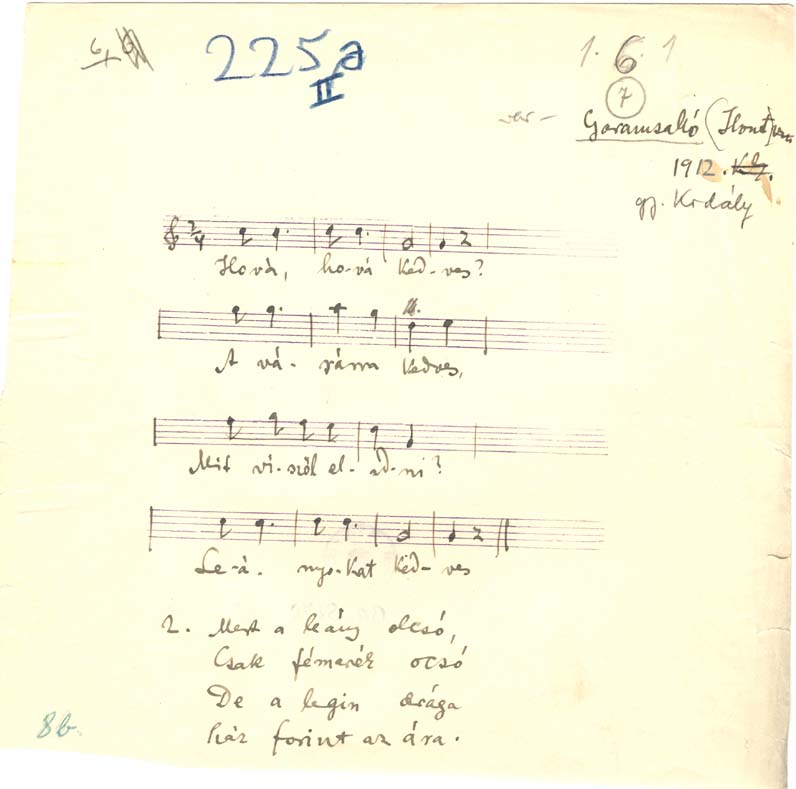 225a
II
1. 6. 1
7
var –
Garamsalló (Hont) vm
1912.
gy. Kodály
Hová, ho-vá Kéd-ves?
A vá- sárra Kedves,
Mit vi-szöl el- ad-ni?
Le-á- nyo-kat Kéd-ves
2. Mert a leány olcsó,
Csak fémarék ocsó
De a legin drága
Száz forint az ára.
8b.